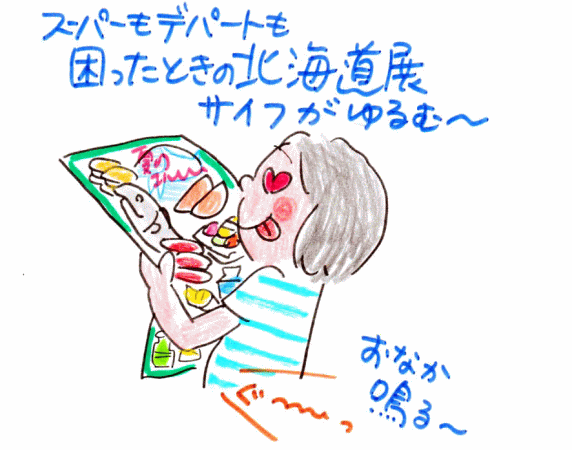 スーパーもデパートも
困ったときの北海道展
サイフがゆるむ～
おなか
鳴る～
ぐ～～っ